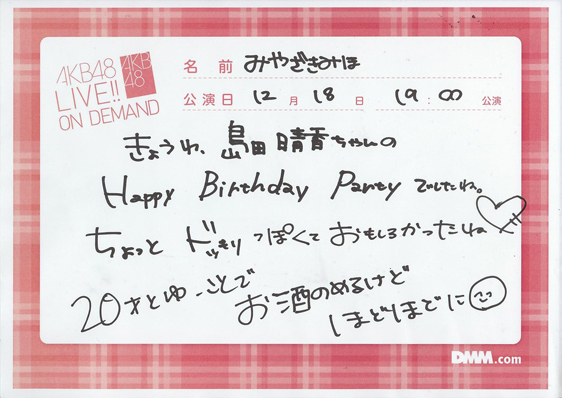 AKB48
LIVE!!
ON DEMAND
AKB
48
名前 みやざきみほ
公演日 12月18日 19:00 公演
きょうわ、島田晴香ちゃんの
Happy Birthday Partyでしたね。
ちょっとドッキリっぽくておもしろかったね
20才とゆーことで
お酒のめるけど
ほどほどに
DMM.com